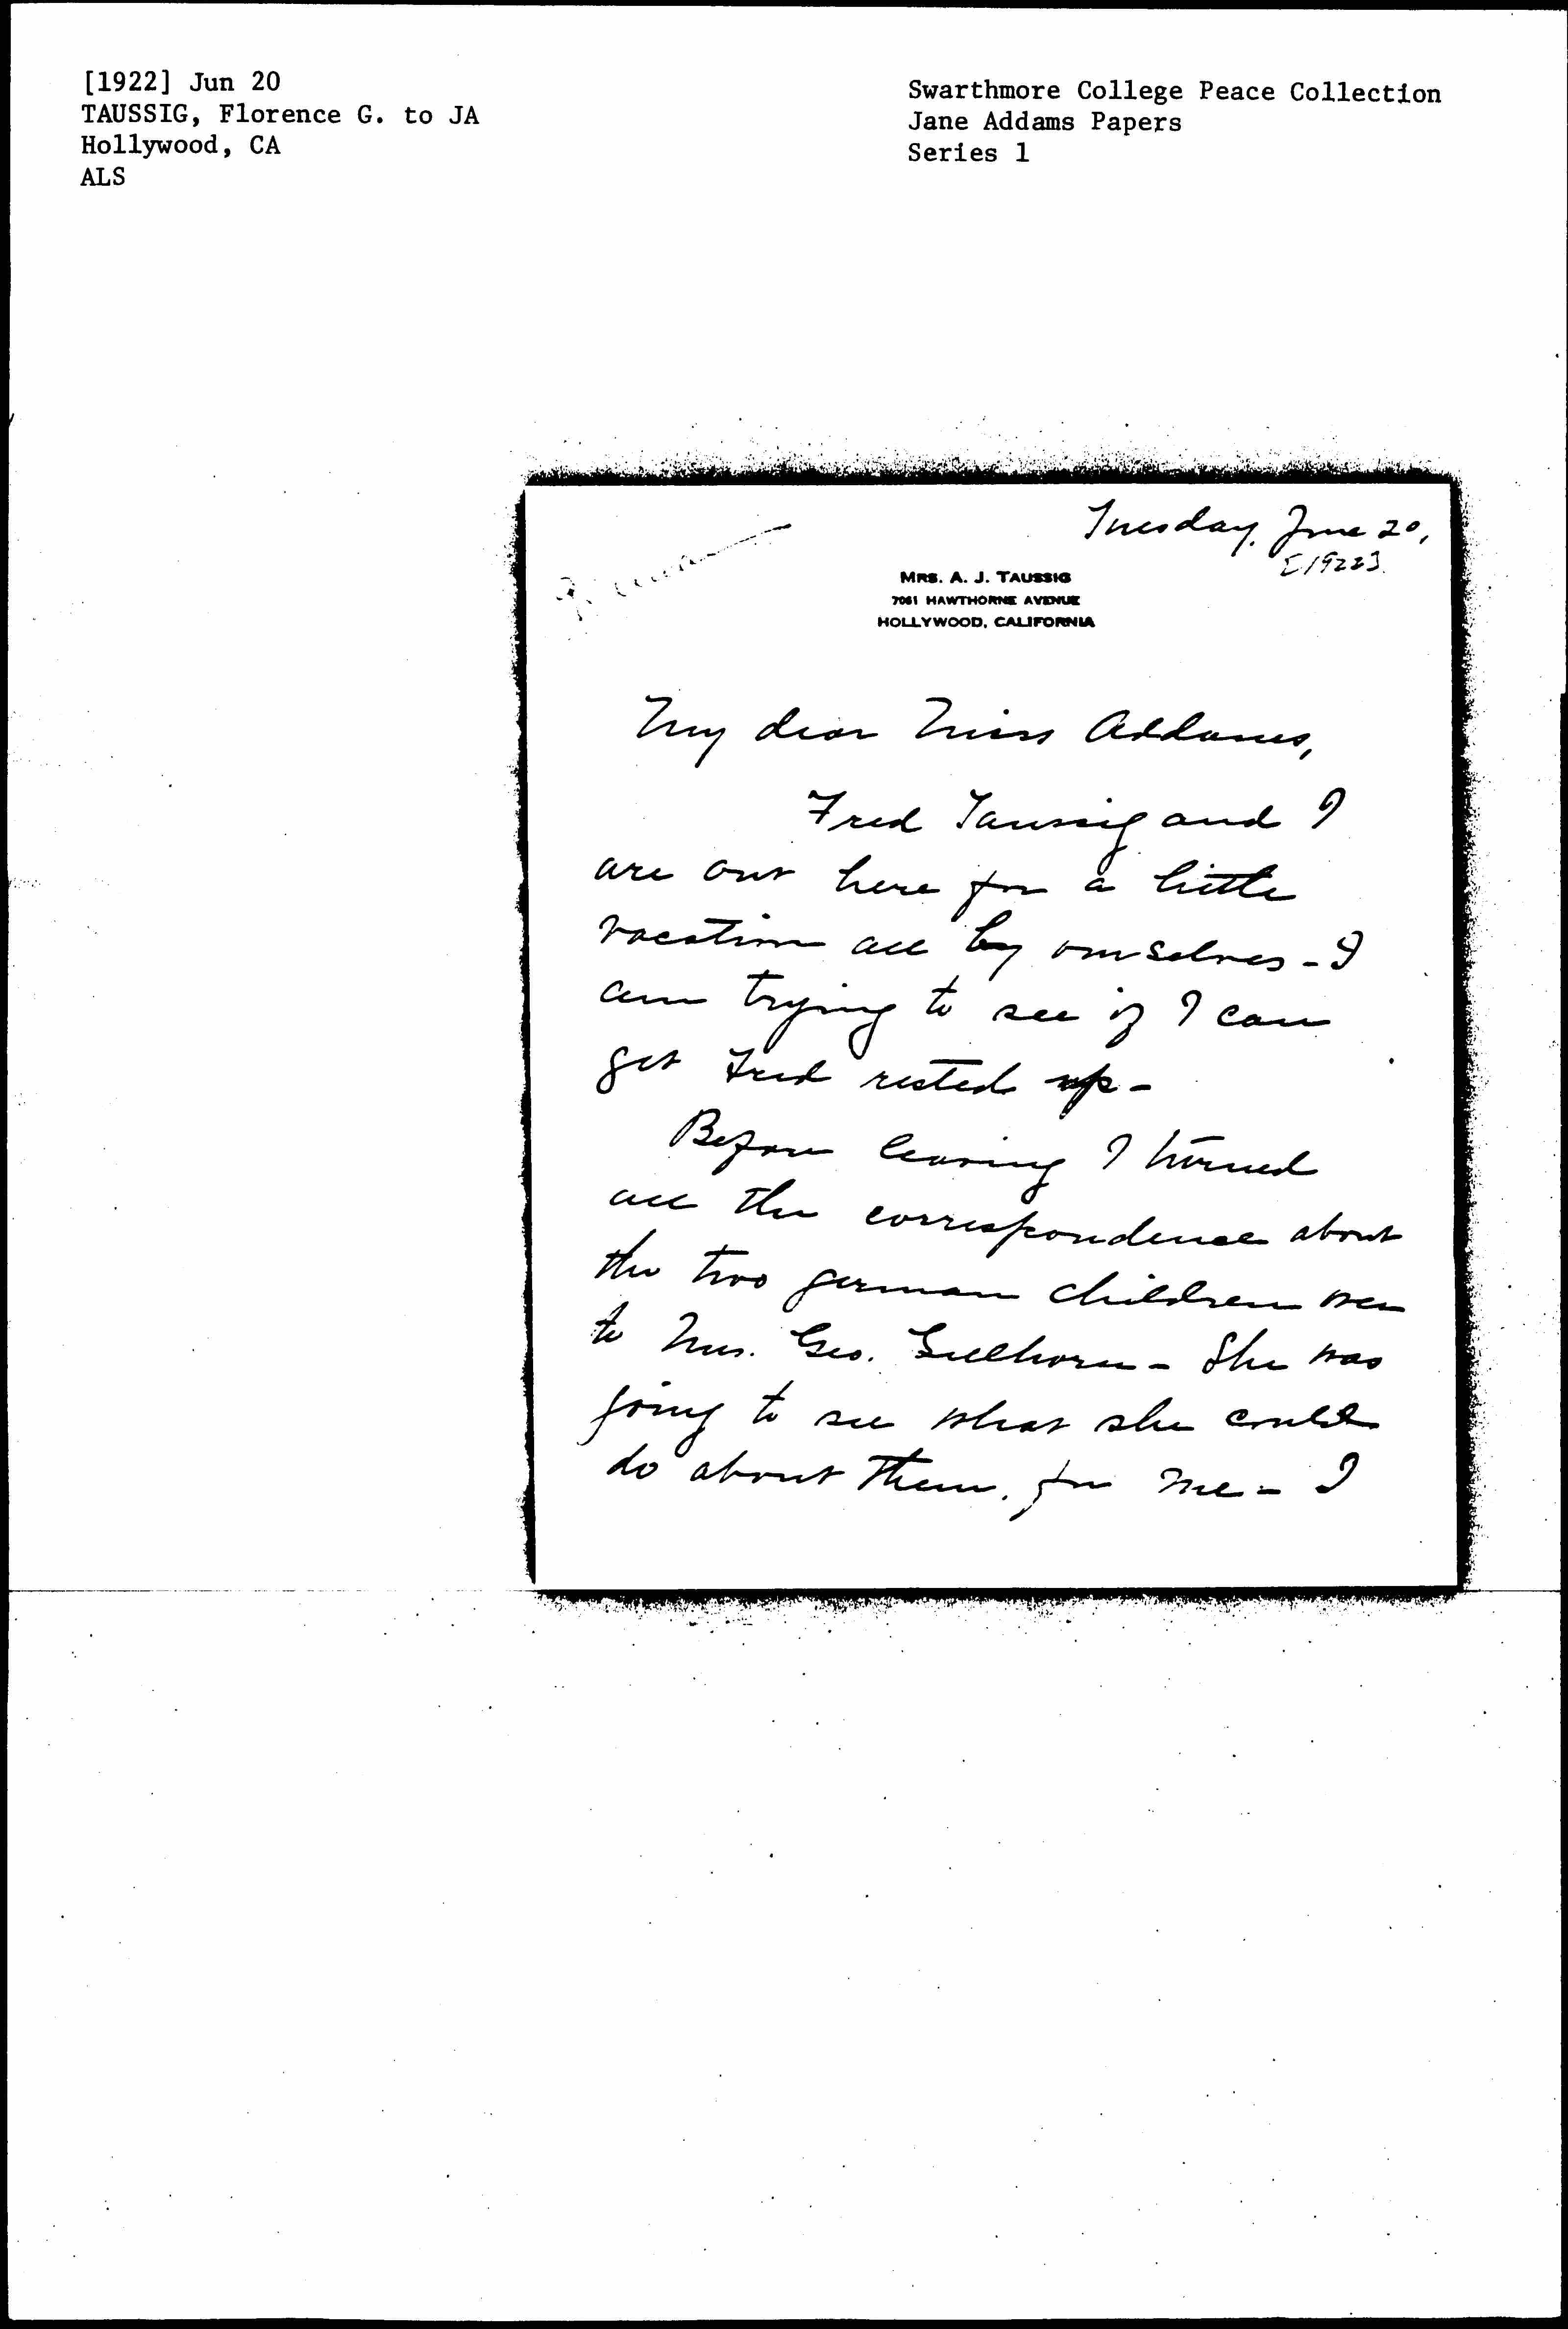 [1922] Jun 20
TAUSSIG, Florence G. to JA
Hollywood, CA
ALS
Swarthmore College Peace Collection
Jane Addams Papers
Series 1
Tuesday, June 20,
[1922]
MRS. A. J. TAUSSIG
7061 HAWTHORNE AVENUE
HOLLYWOOD, CALIFORNIA
My dear Miss Addams,
Fred Taussig and I
are out here for a little
vacation all by ourselves - I
am trying to see if I can
get Fred rested up -
Before leaving I turned
all the correspondence about
the two german children over
to Mrs. Geo. Gellhorn - She was
going to see what she could
do about them, for me - I